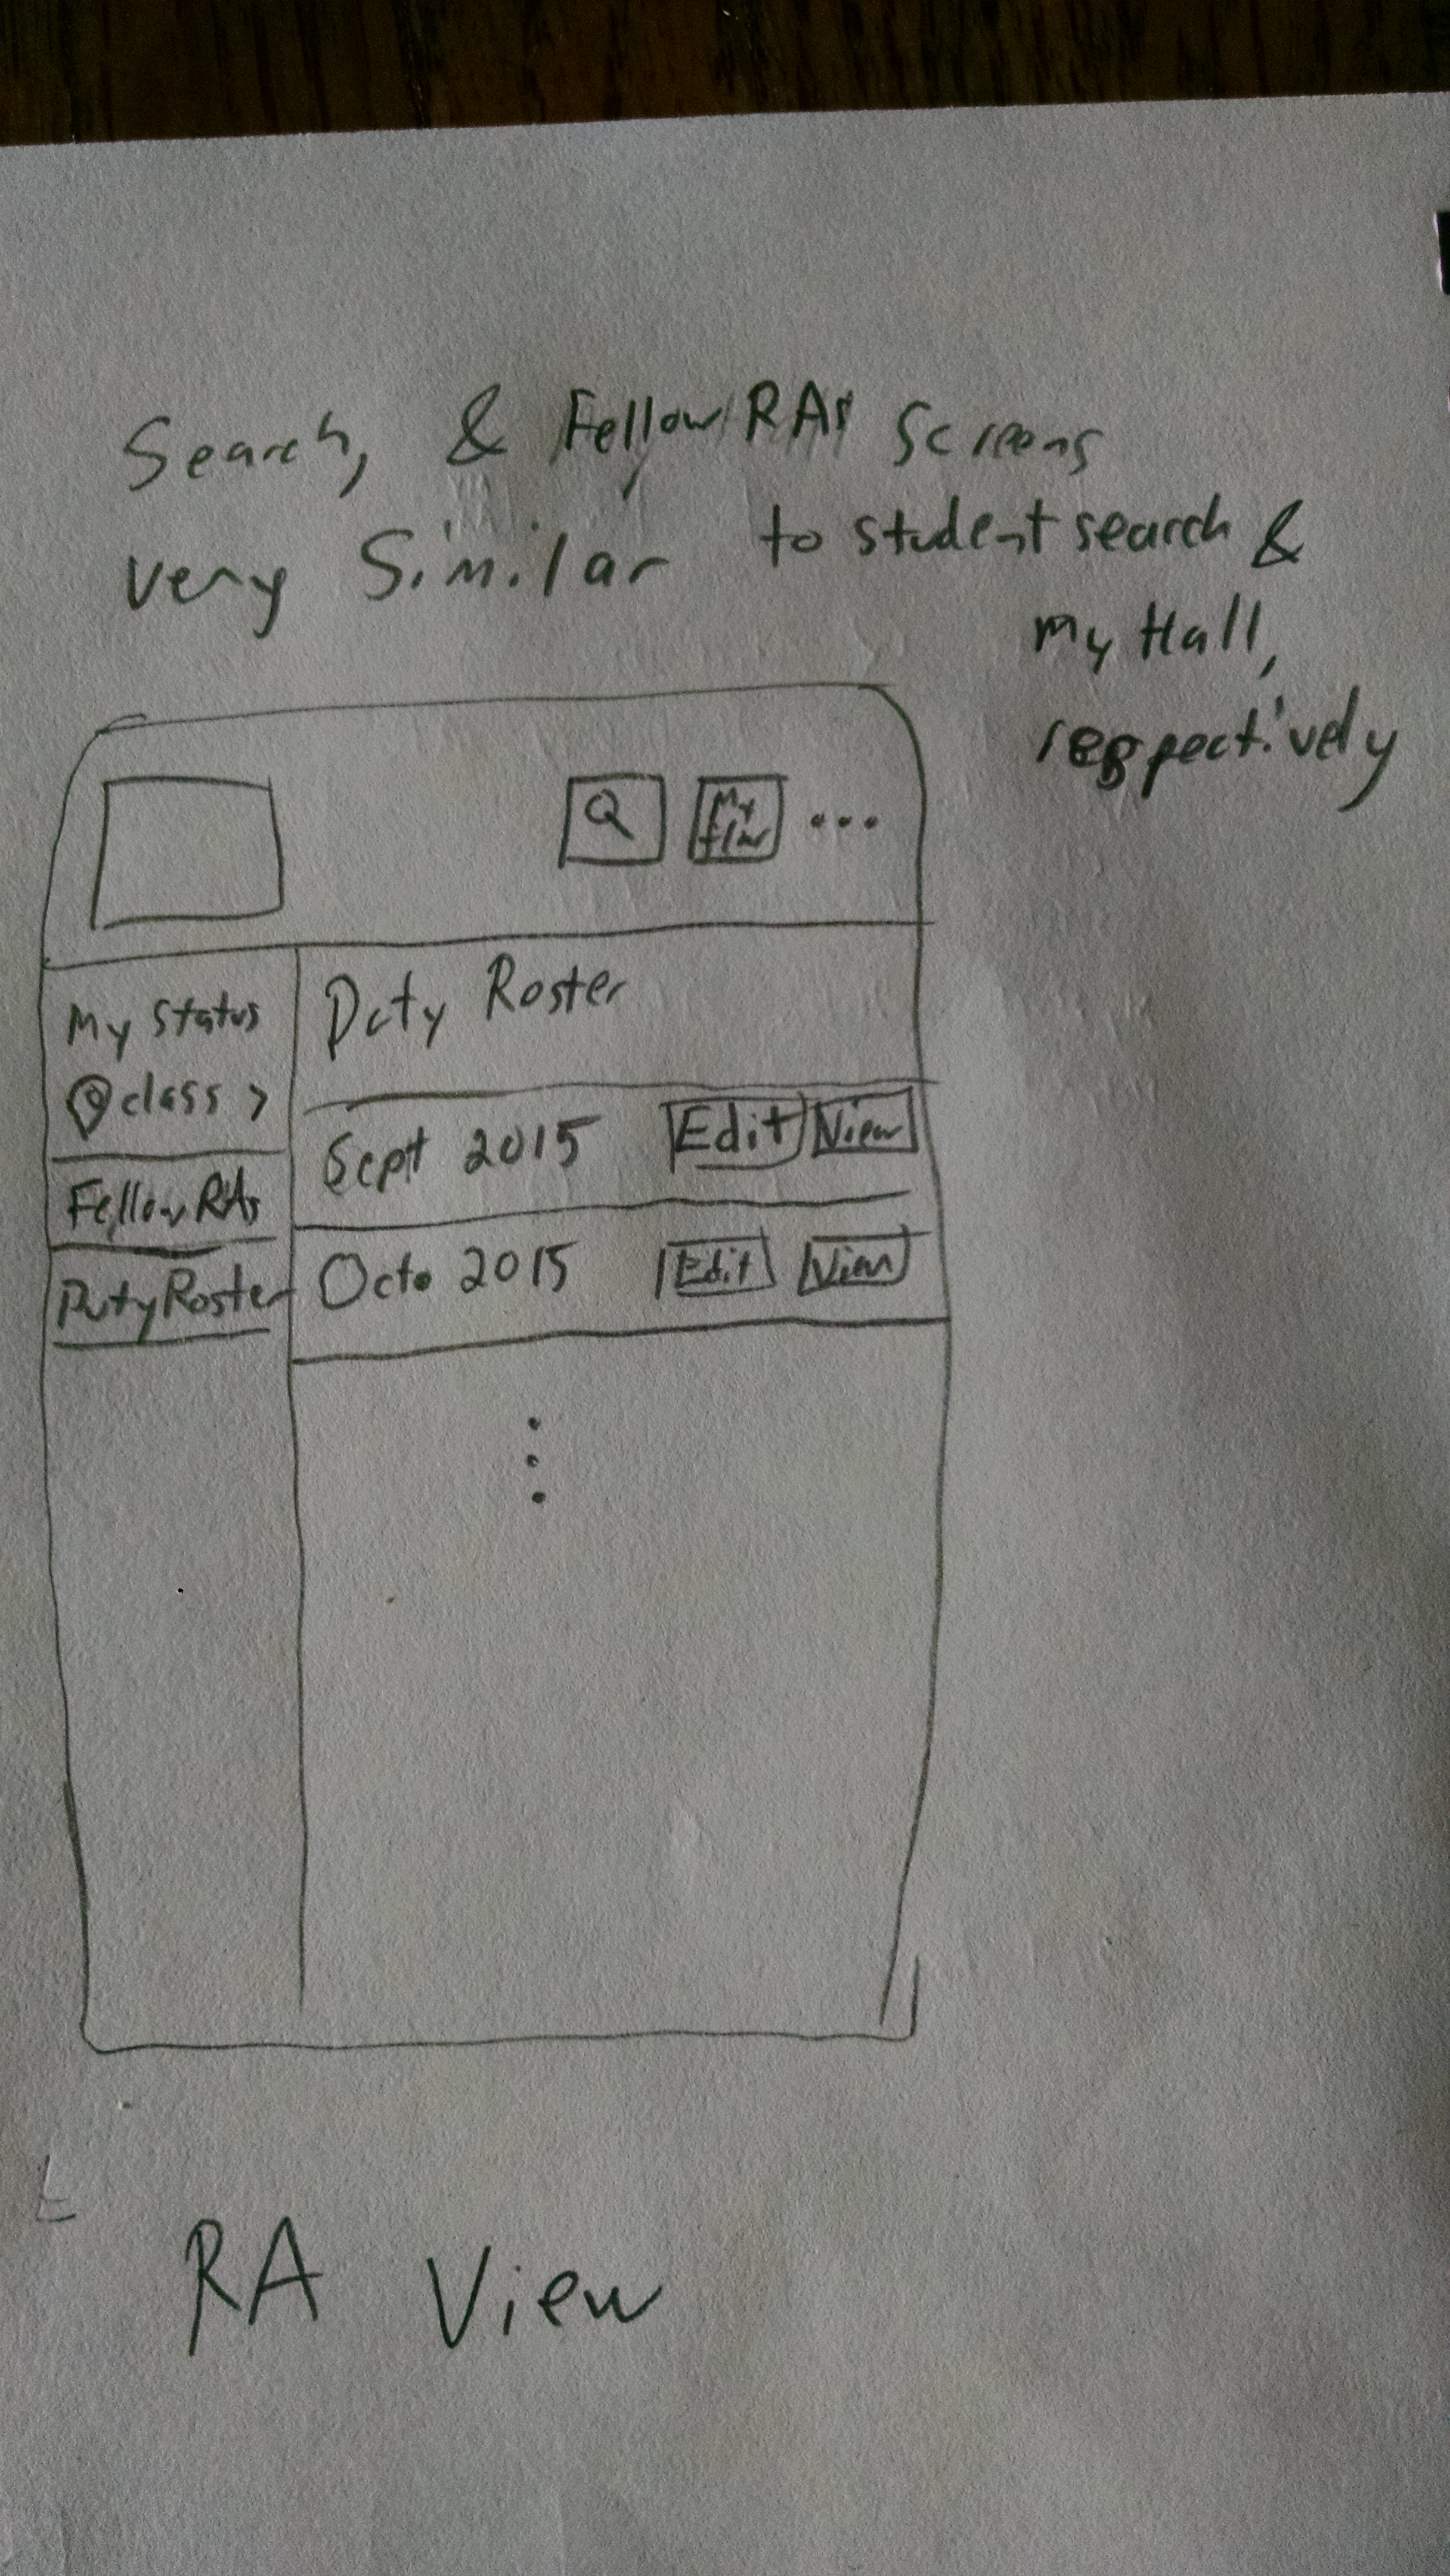 Search, & Fellow RAs Screens
very Similar to student search &
my Hall,
respectively
My
flor
...
My Status
class >
Fellow RAs
Duty Roster
Duty Roster
Sept 2015 Edit View
Octo 2015 Edit View
RA View